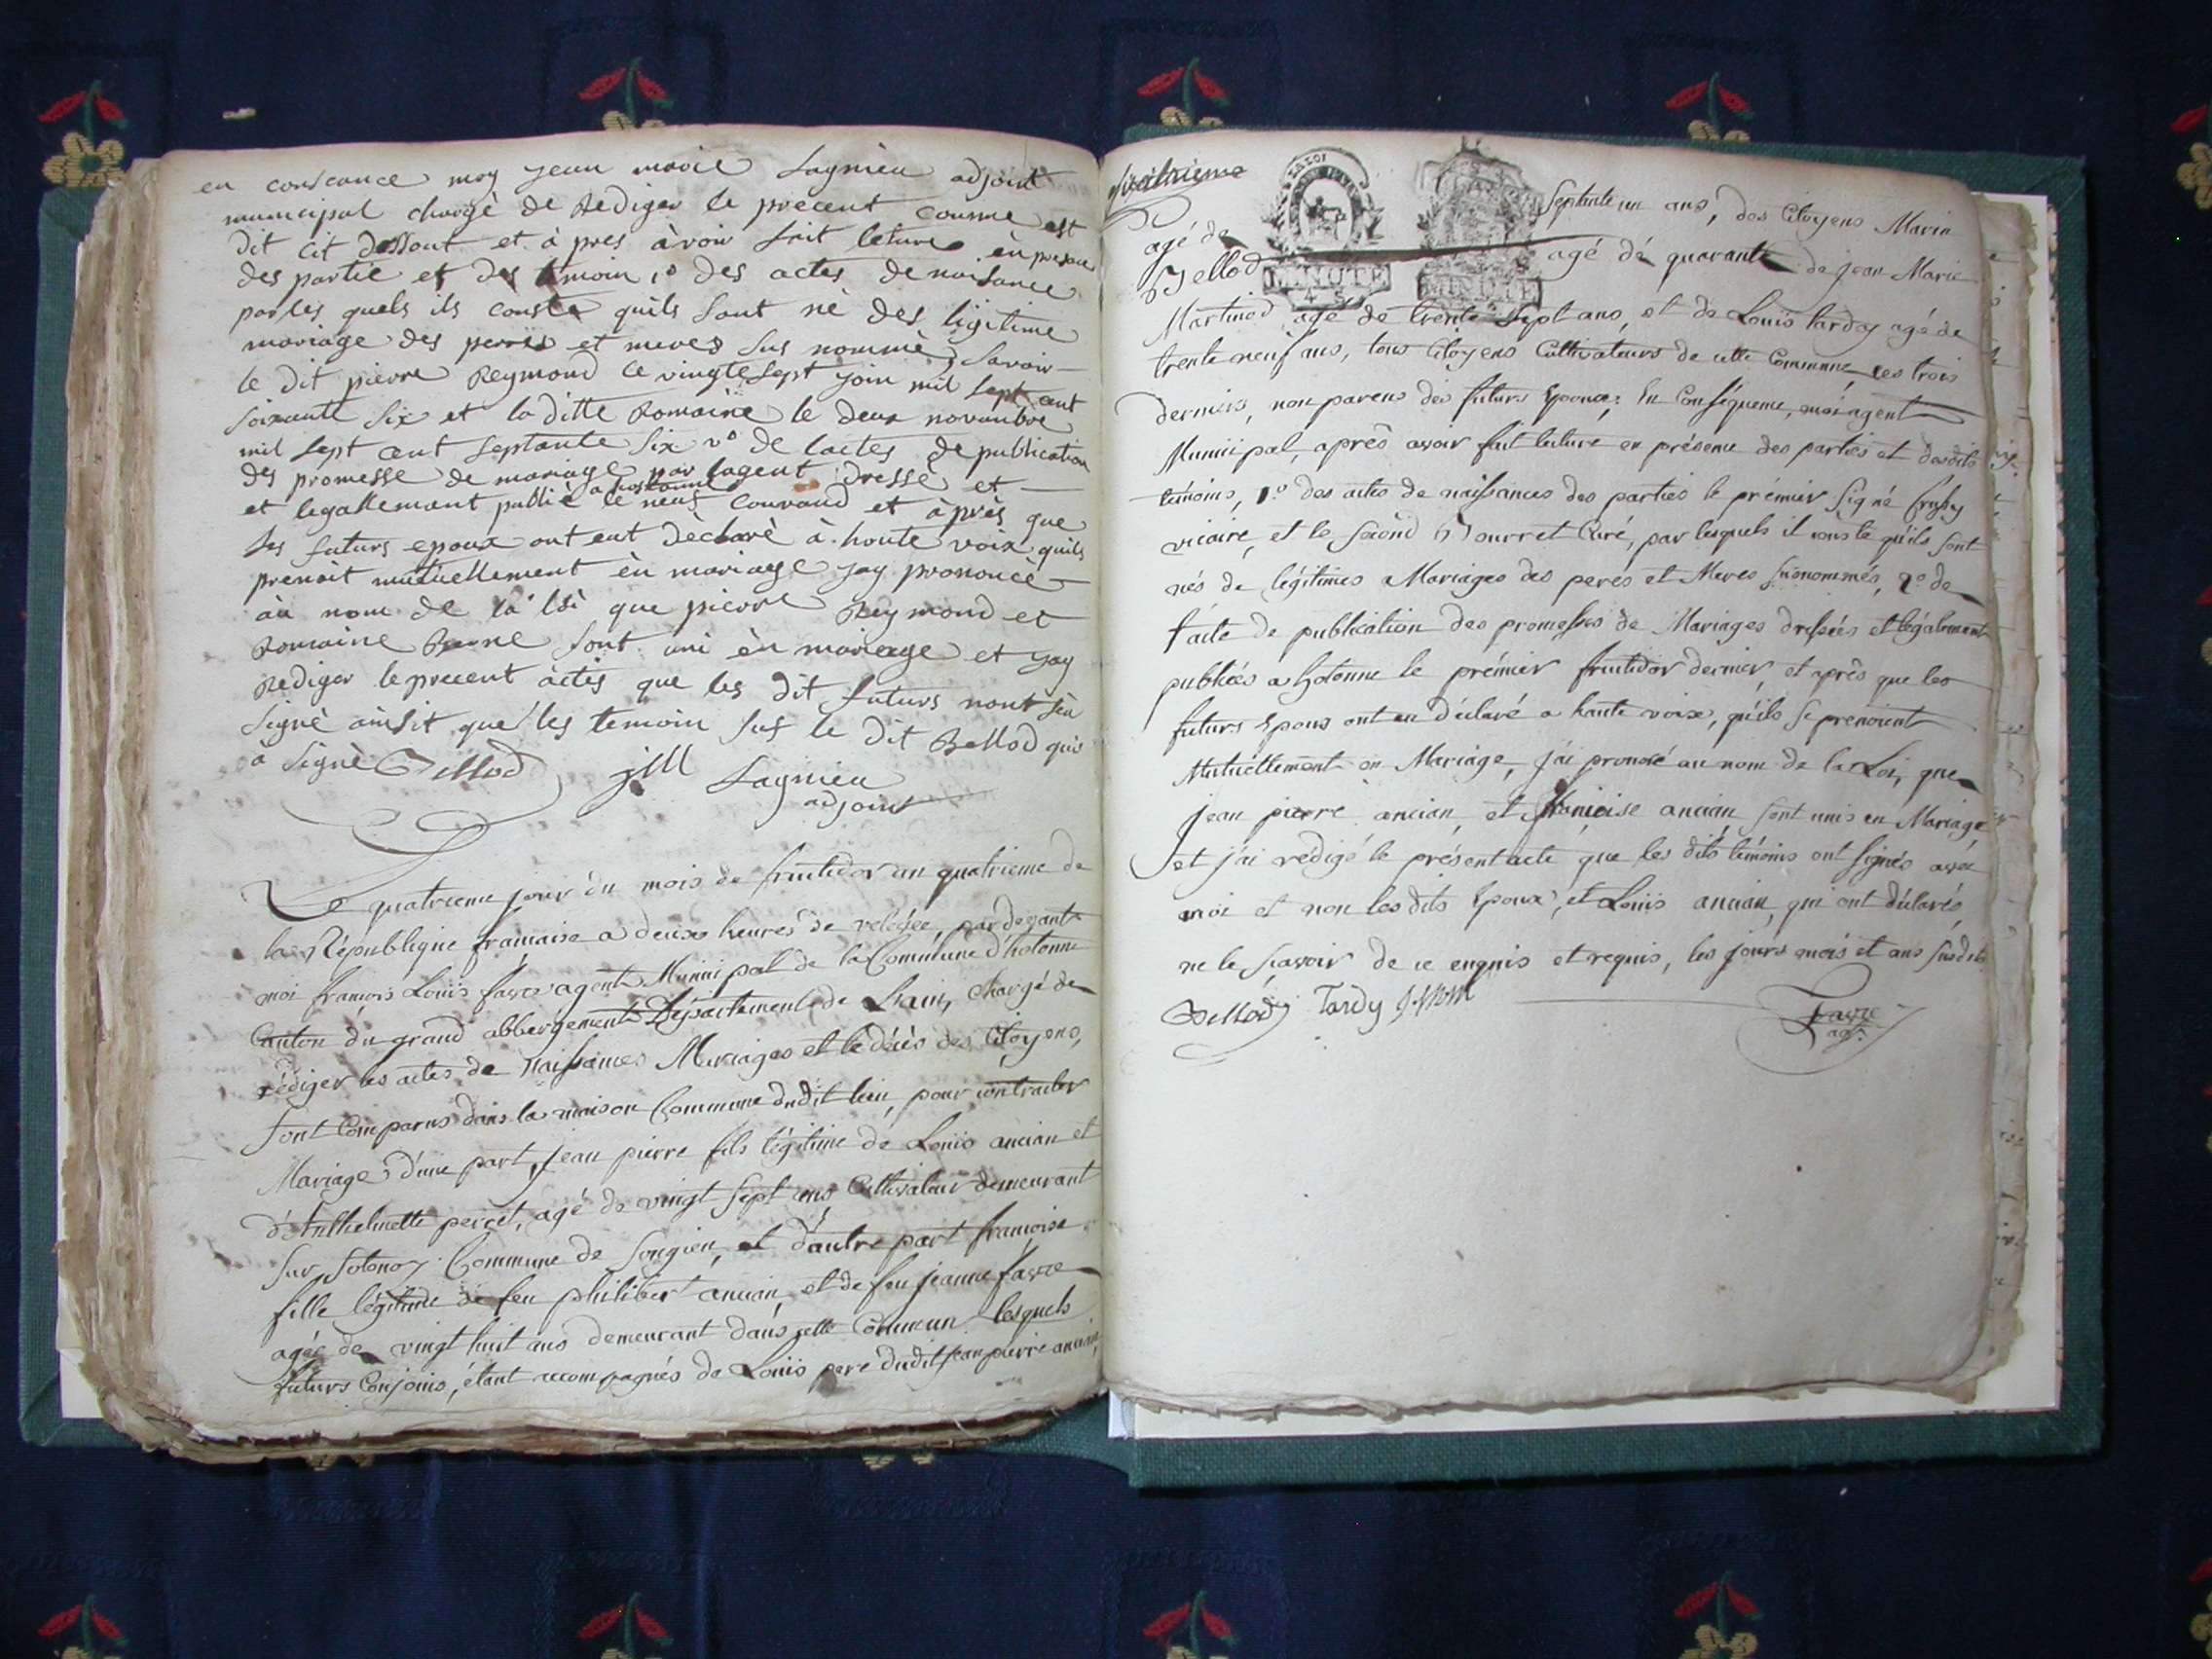 en conseance moy jean marie Lagnieu adjoint
municipal chargè de Rediger le precent comme est
dit cit dessout et à pres àvoir fait leture èn presence
des partie et des temoin 1º des actes de naisance
par les quels ils conste quils sont nè des ligitime
mariage des peres et meres sus nommè savoir
le dit pierre Reymond le vingte sept join mil sept cent
soixante six et la ditte Romaine le deux novembre
mil sept cent septante six 2º de lactes de publication
des promesse de mariage par lagent dressè et
et legallemant publiè a hostonne le neuf couraud et àprès que
les futurs epoux ont eut dèclarè à houte voix quils
prenoit mutuellement èn mariage jay prononcè
àu nom de la loi que pierre Reymond et
Romaine sont uni èn mariage et jay
Rediger le precent àctes que les dit futurs nont seu
signè ainsit que les temoin sus le dit Bellod qui
à signè Bellod jM Lagnieu
adjoint
Le quatrieme jour du mois de fructidor an quatrieme de
la République française a deux heures de relevée, pardevant
moi françois Louis favre agent Municipal de la Commune d'hotonne
Canton du grand abbergement Département de Lain, chargé de
rédiger les actes de Naissances Mariages et le décès des Citoyens,
sont Comparus dans la maison Commune dudit lieu, pour contracter
Mariage d'une part, jean pierre fils légitime de Louis ancian et
d'Anthelmette percet, agé de vingt sept ans Cultivateur demeurant
sur sotonoz Commune de songieu, et d'autre part françoise
fille légitime de feu philibert ancian, et de feu jeanne favre
agée de vingt huit ans demeurant dans cette Commun lesquels
futurs Conjoins, étant accompagnés de Louis pere dudit jean pierre ancian,
huitieme
agé de septante un ans, des Citoyens Marin
Bellod agé de quarante de jean Marie
Martinod agé de trente sept ans, et de Louis tardy agé de
trente neuf ans, tous Citoyens Cultivateurs de cette Commune, les trois
derniers, non parens des futurs Epoux; En Conséquence, moi agent
Municipal, après avoir fait lecture en présence des parties et desdits
témoins, 1º des actes de naissances des parties le prémier signé
vicaire, et le second Bourret Curé, par lesquels il conste qu'ils sont
nés de légitimes Mariages des peres et Meres susnommés, 2º de
l'acte de publication des promesses de Mariages dressées et légalement
publiées a hotonne le prémier fructidor dernier, et après que les
futurs Epoux ont eu déclaré a haute voix, qu'ils se prenoient
Mutuellement en Mariage, j'ai prononcé au nom de la Loi, que
jean pierre ancian, et françoise ancian, sont unis en Mariage
et j'ai rédigé le présent acte que les dits témoins ont signés avec
moi et non les dits Epoux, et Louis ancian, qui ont déclarés
ne le sçavoir de ce enquis et requis, les jours mois et ans susdits
Bellod Tardy J·MM Favre
agt.
MINUTE
MINUTE